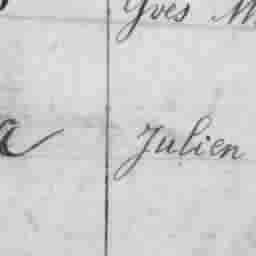 Yves M
a Julien